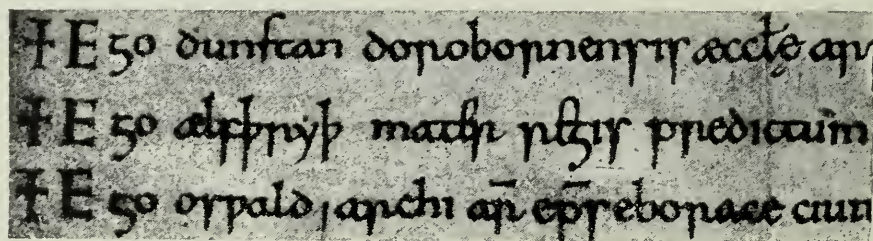 + Ego dunstan dorobornensis æccłę
+ Ego ælfþryþ mater regis predictum
+ Ego osƿald archi ep̄s eborace